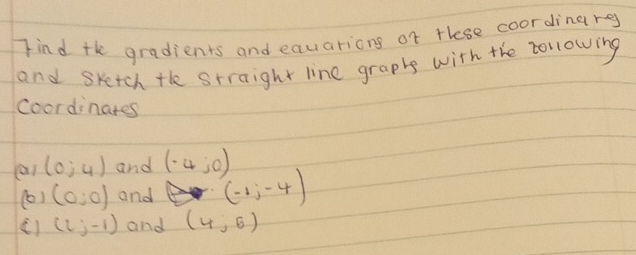 Find the gradients and equations of these coordinates
and sketch the straight line graphs with the following
Coordinates
(a) (0;4) and (-4;0)
(b) (0;0) and (-1;-4)
(c) (2;-1) and (4;5)